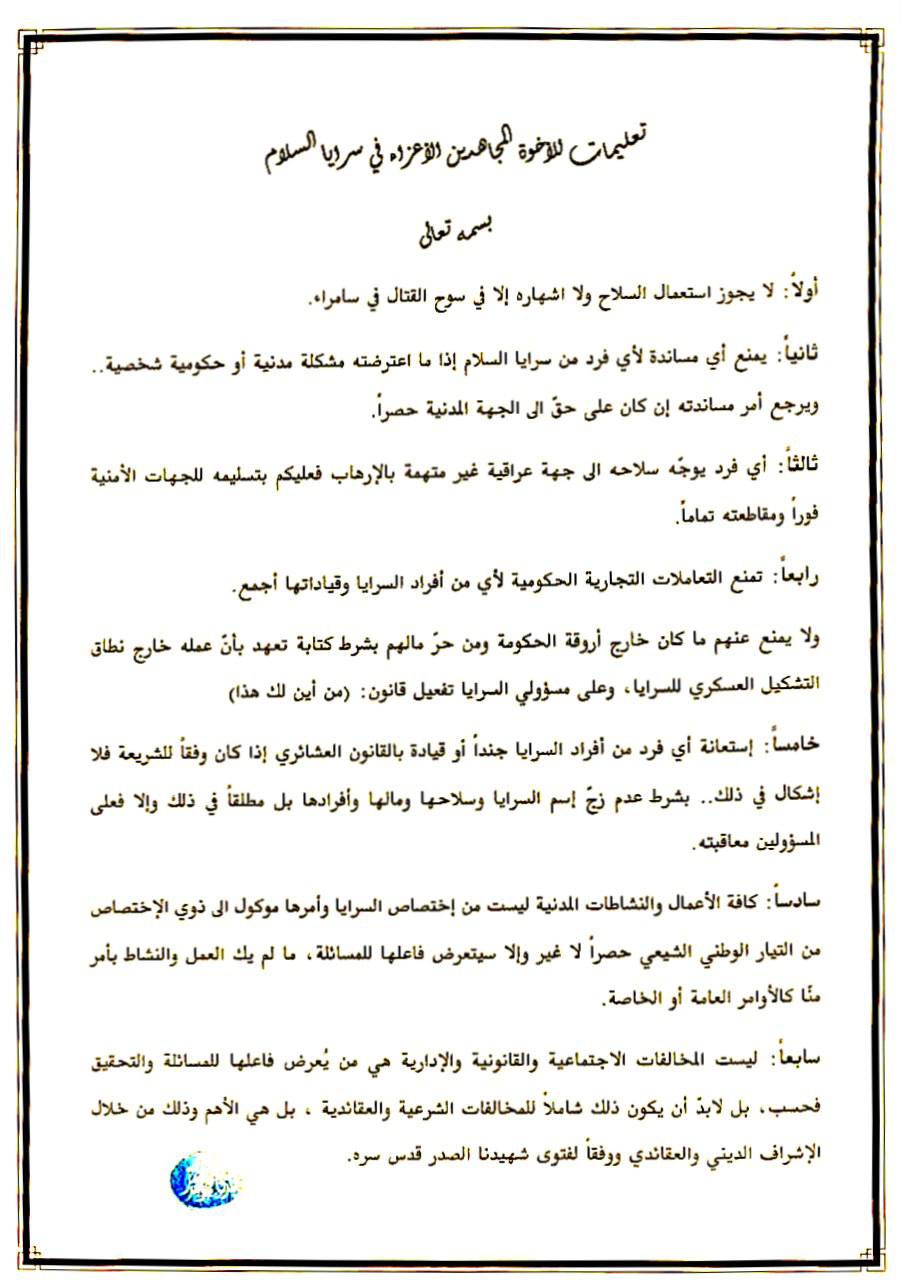 تعليمات للاخوة المجاهدين الاعزاء في سرايا السلام
بسمه تعالى
أولاً: لا يجوز استعمال السلاح ولا اشهاره إلا في سوح القتال في سامراء.
ثانياً: يمنع أي مساندة لأي فرد من سرايا السلام إذا ما اعترضته مشكلة مدنية أو حكومية شخصية..
ويرجع أمر مساندته إن كان على حقّ الى الجهة المدنية حصراً.
ثالثاً: أي فرد يوجّه سلاحه الى جهة عراقية غير متهمة بالإرهاب فعليكم بتسليمه للجهات الأمنية
فوراً ومقاطعته تماماً.
رابعاً: تمنع التعاملات التجارية الحكومية لأي من أفراد السرايا وقياداتها أجمع.
ولا يمنع عنهم ما كان خارج أروقة الحكومة ومن حرّ مالهم بشرط كتابة تعهد بأنّ عمله خارج نطاق
التشكيل العسكري للسرايا، وعلى مسؤولي السرايا تفعيل قانون: (من أين لك هذا)
خامساً: إستعانة أي فرد من أفراد السرايا جنداً أو قيادة بالقانون العشائري إذا كان وفقاً للشريعة فلا
إشكال في ذلك.. بشرط عدم زجّ إسم السرايا وسلاحها ومالها وأفرادها بل مطلقاً في ذلك وإلا فعلى
المسؤولين معاقبته.
سادساً: كافة الأعمال والنشاطات المدنية ليست من إختصاص السرايا وأمرها موكول الى ذوي الإختصاص
من التيار الوطني الشيعي حصراً لا غير وإلا سيتعرض فاعلها للمسائلة، ما لم يك العمل والنشاط بأمر
منّا كالأوامر العامة أو الخاصة.
سابعاً: ليست المخالفات الاجتماعية والقانونية والإدارية هي من يُعرض فاعلها للمسائلة والتحقيق
فحسب، بل لابدّ أن يكون ذلك شاملاً للمخالفات الشرعية والعقائدية ، بل هي الأهم وذلك من خلال
الإشراف الديني والعقائدي ووفقاً لفتوى شهيدنا الصدر قدس سره.